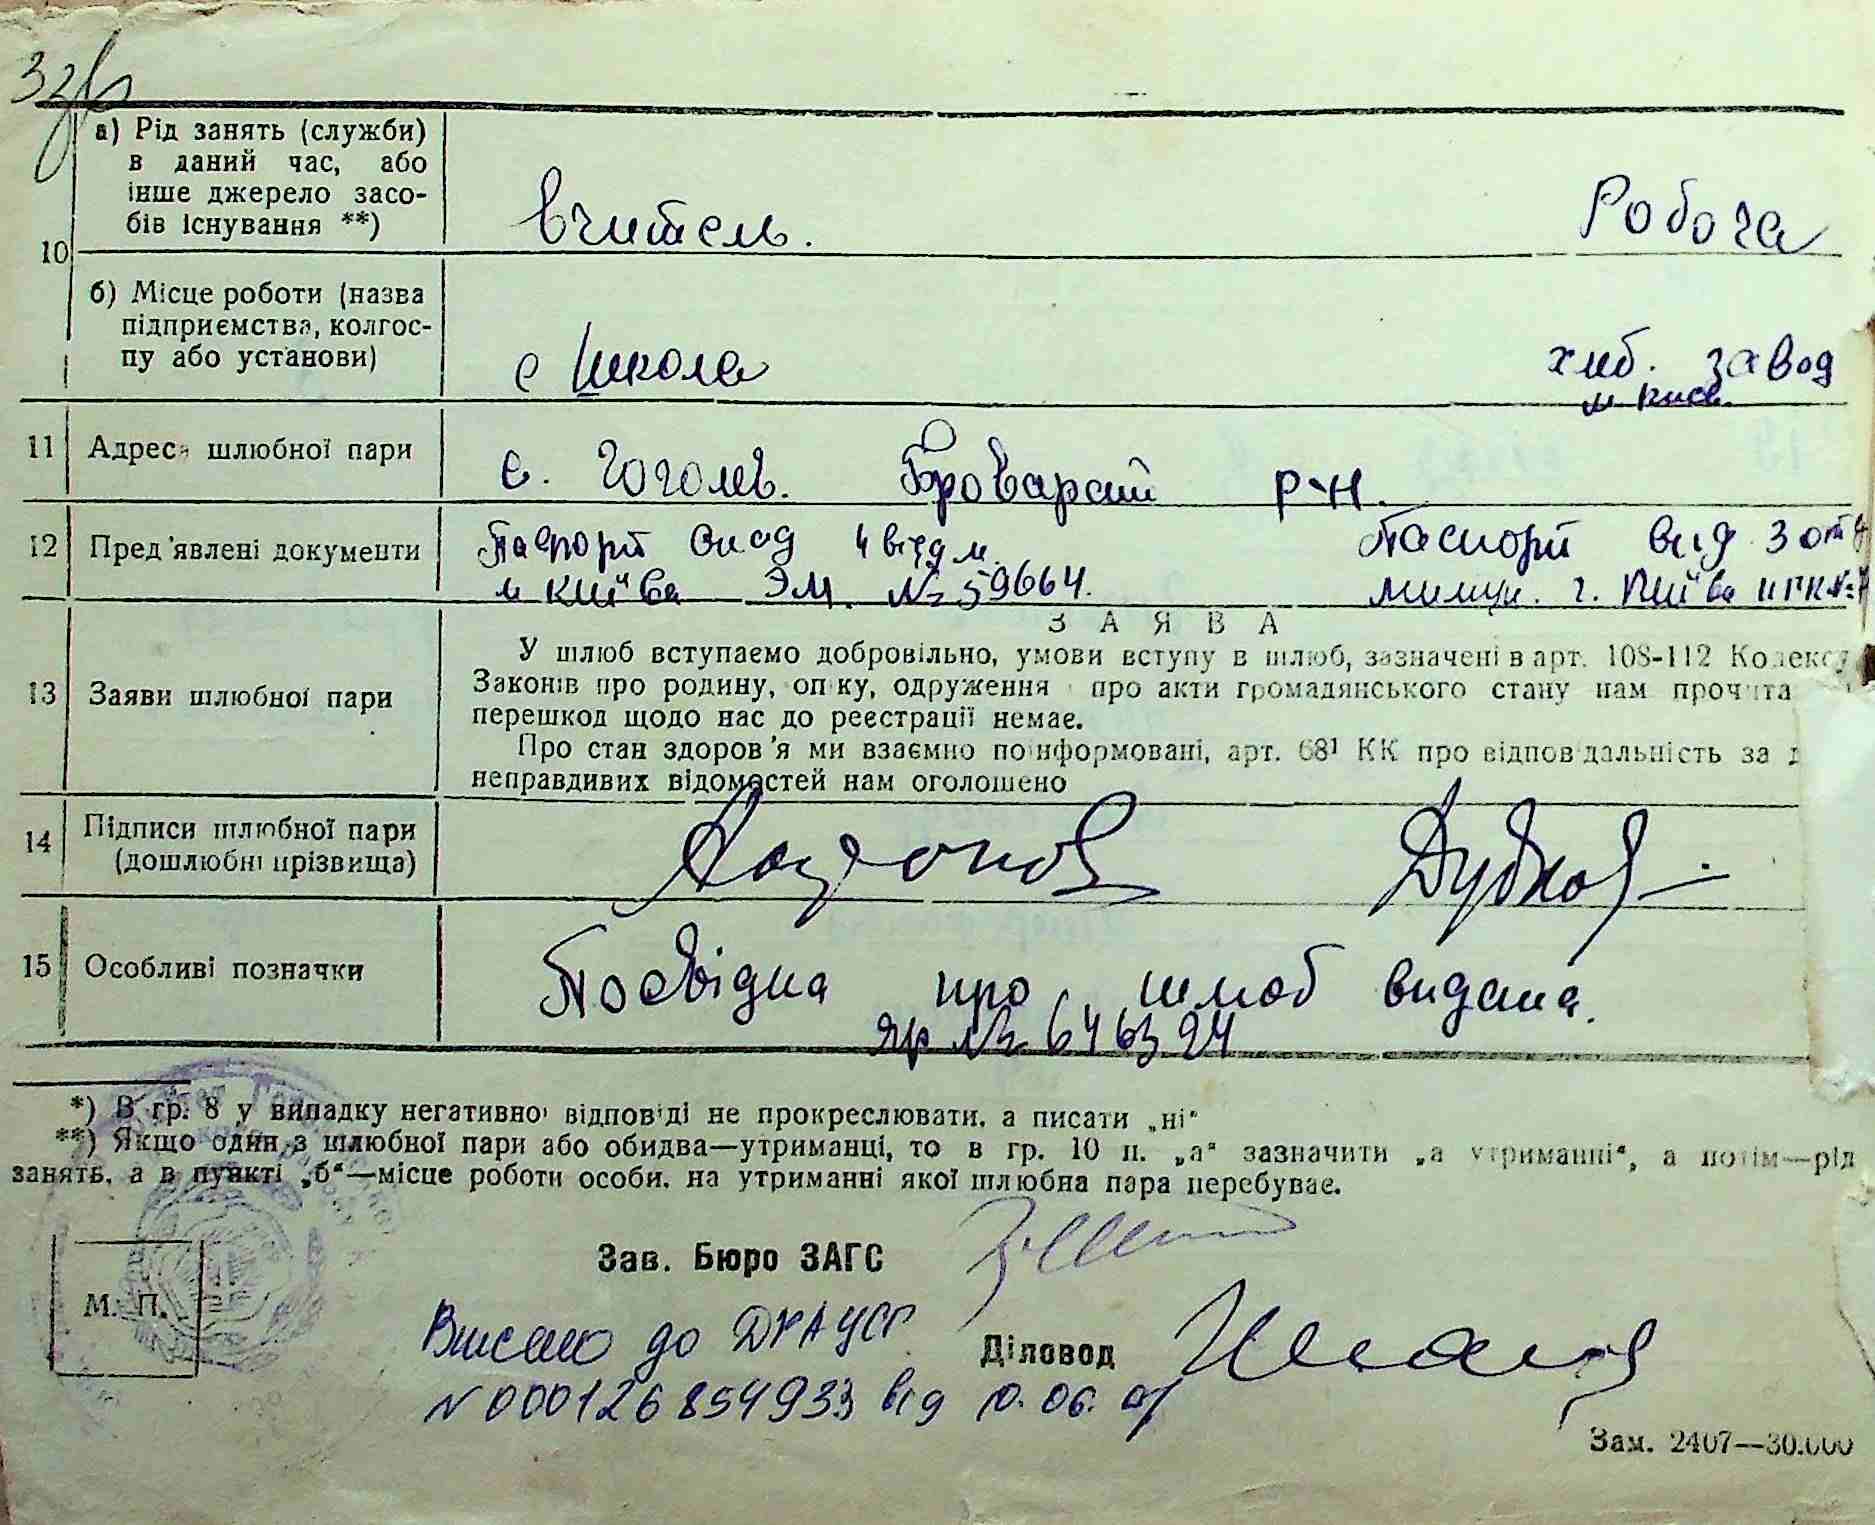 а) Рід занять (служби)
в даний час, або
інше джерело засо-
бів існування **)
вчитель.
Робоча
10
б) Місце роботи (назва
підприємства, колгос-
пу або установи)
с Школа
хліб. завод
м Київ.
11 Адреса шлюбної пари
с. Гоголев. Броварский р-н.
12 Пред'явлені документи
Паспорт 4 відд м.
м Київа ЭМ. № 59664.
Паспорт вид 3 отд
милиц. г. Київа
З А Я В А
13 Заяви шлюбної пари
У шлюб вступаємо добровільно, умови вступу в шлюб, зазначені в арт. 108-112 Кодексу
Законів про родину, опіку, одруження про акти громадянського стану нам прочита
перешкод щодо нас до реєстрації немає.
Про стан здоров'я ми взаємно поінформовані, арт. 68¹ КК про відповідальність за
неправдивих відомостей нам оголошено
14 Підписи шлюбної пари
(дошлюбні прізвища)
15 Особливі позначки
Посвідка про шлюб видана.
яр № 646324
*) В гр. 8 у випадку негативної відповіді не прокреслювати, а писати „ні“
**) Якщо один з шлюбної пари або обидва—утриманці, то в гр. 10 п. „а“ зазначити „а утриманні“, а потім—рід
занять, а в пункті „б“—місце роботи особи, на утриманні якої шлюбна пара перебуває.
Зав. Бюро ЗАГС
М. П.
Внесено до ДРАЦСГ
Діловод
N 000126854933 від 10.06.
Зам. 2407—30.000